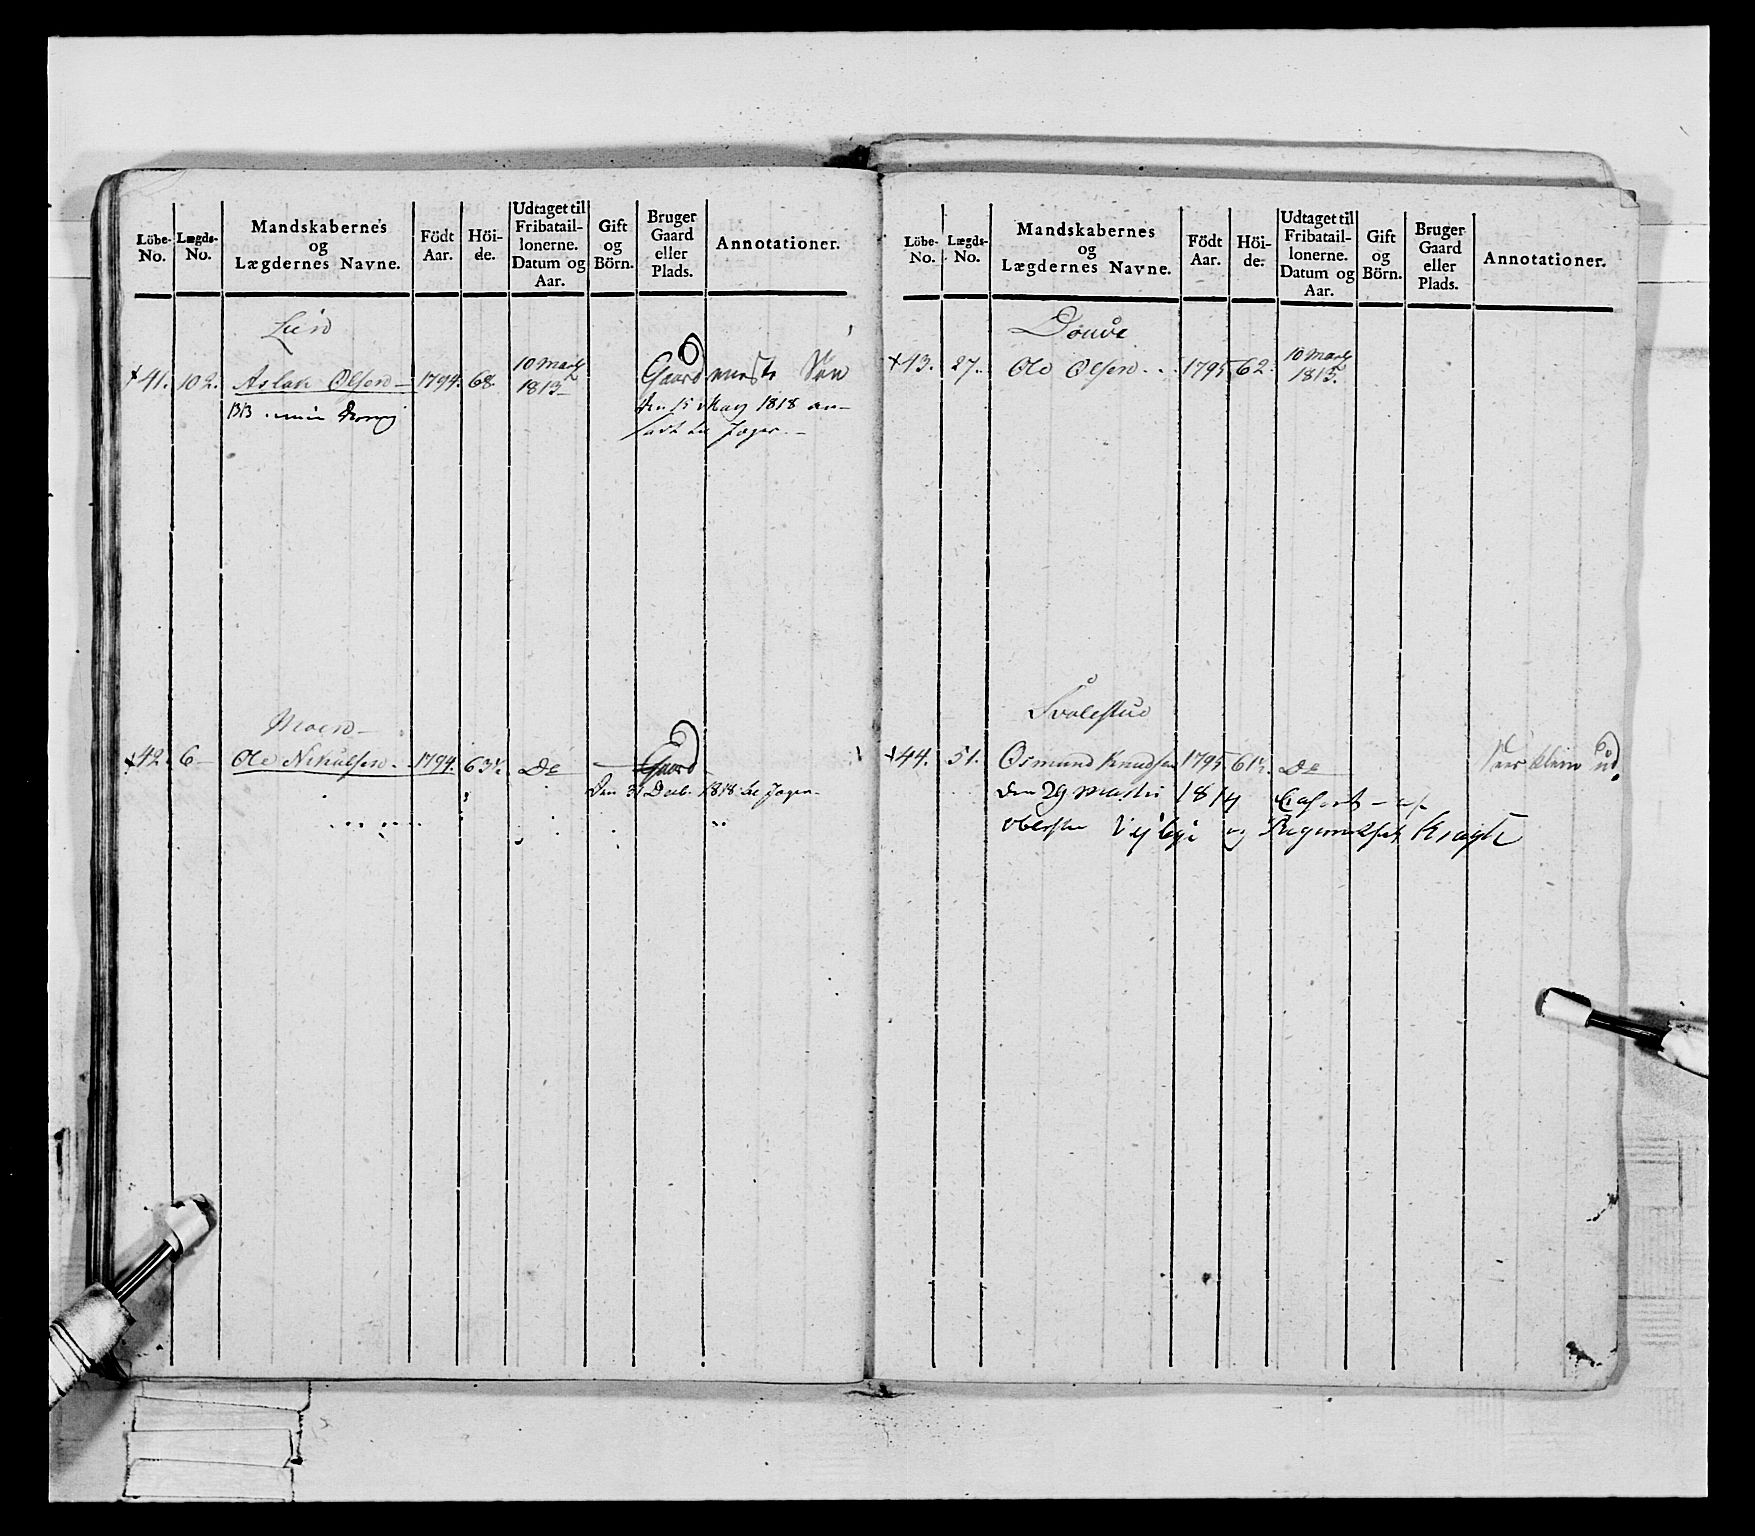 Löbe-No. Lægds-No. Mandskabernes og Lægdernes Navne. Födt Aar. Höi-de. Udtaget til Fribatail-lonerne. Datum og Aar. Gift og Börn. Bruger Gaard eller Plads. Annotationer.
Lien
+41. 102. Aslak Olsen 1794. 68. 10 Marts 1813 Gaard Søn
1313
den 15 May 1818 an-
sadt til Jæger.
Moen
+42 6 Ole Nikulsen 1794. 63½. Do Gaard
den 31 Decb. 1818 til Jæger
Löbe-No. Lægds-No. Mandskabernes og Lægdernes Navne. Födt Aar. Höi-de. Udtaget til Fribatail-lonerne. Datum og Aar. Gift og Börn. Bruger Gaard eller Plads. Annotationer.
+43. 27. Ole Olsen 1795 62. 10 Marts 1813.
Svalestue
+44. 51. Osmund Knudsen 1795 61½. Do
den 29 Martii 1814 Casert af
Obersten og